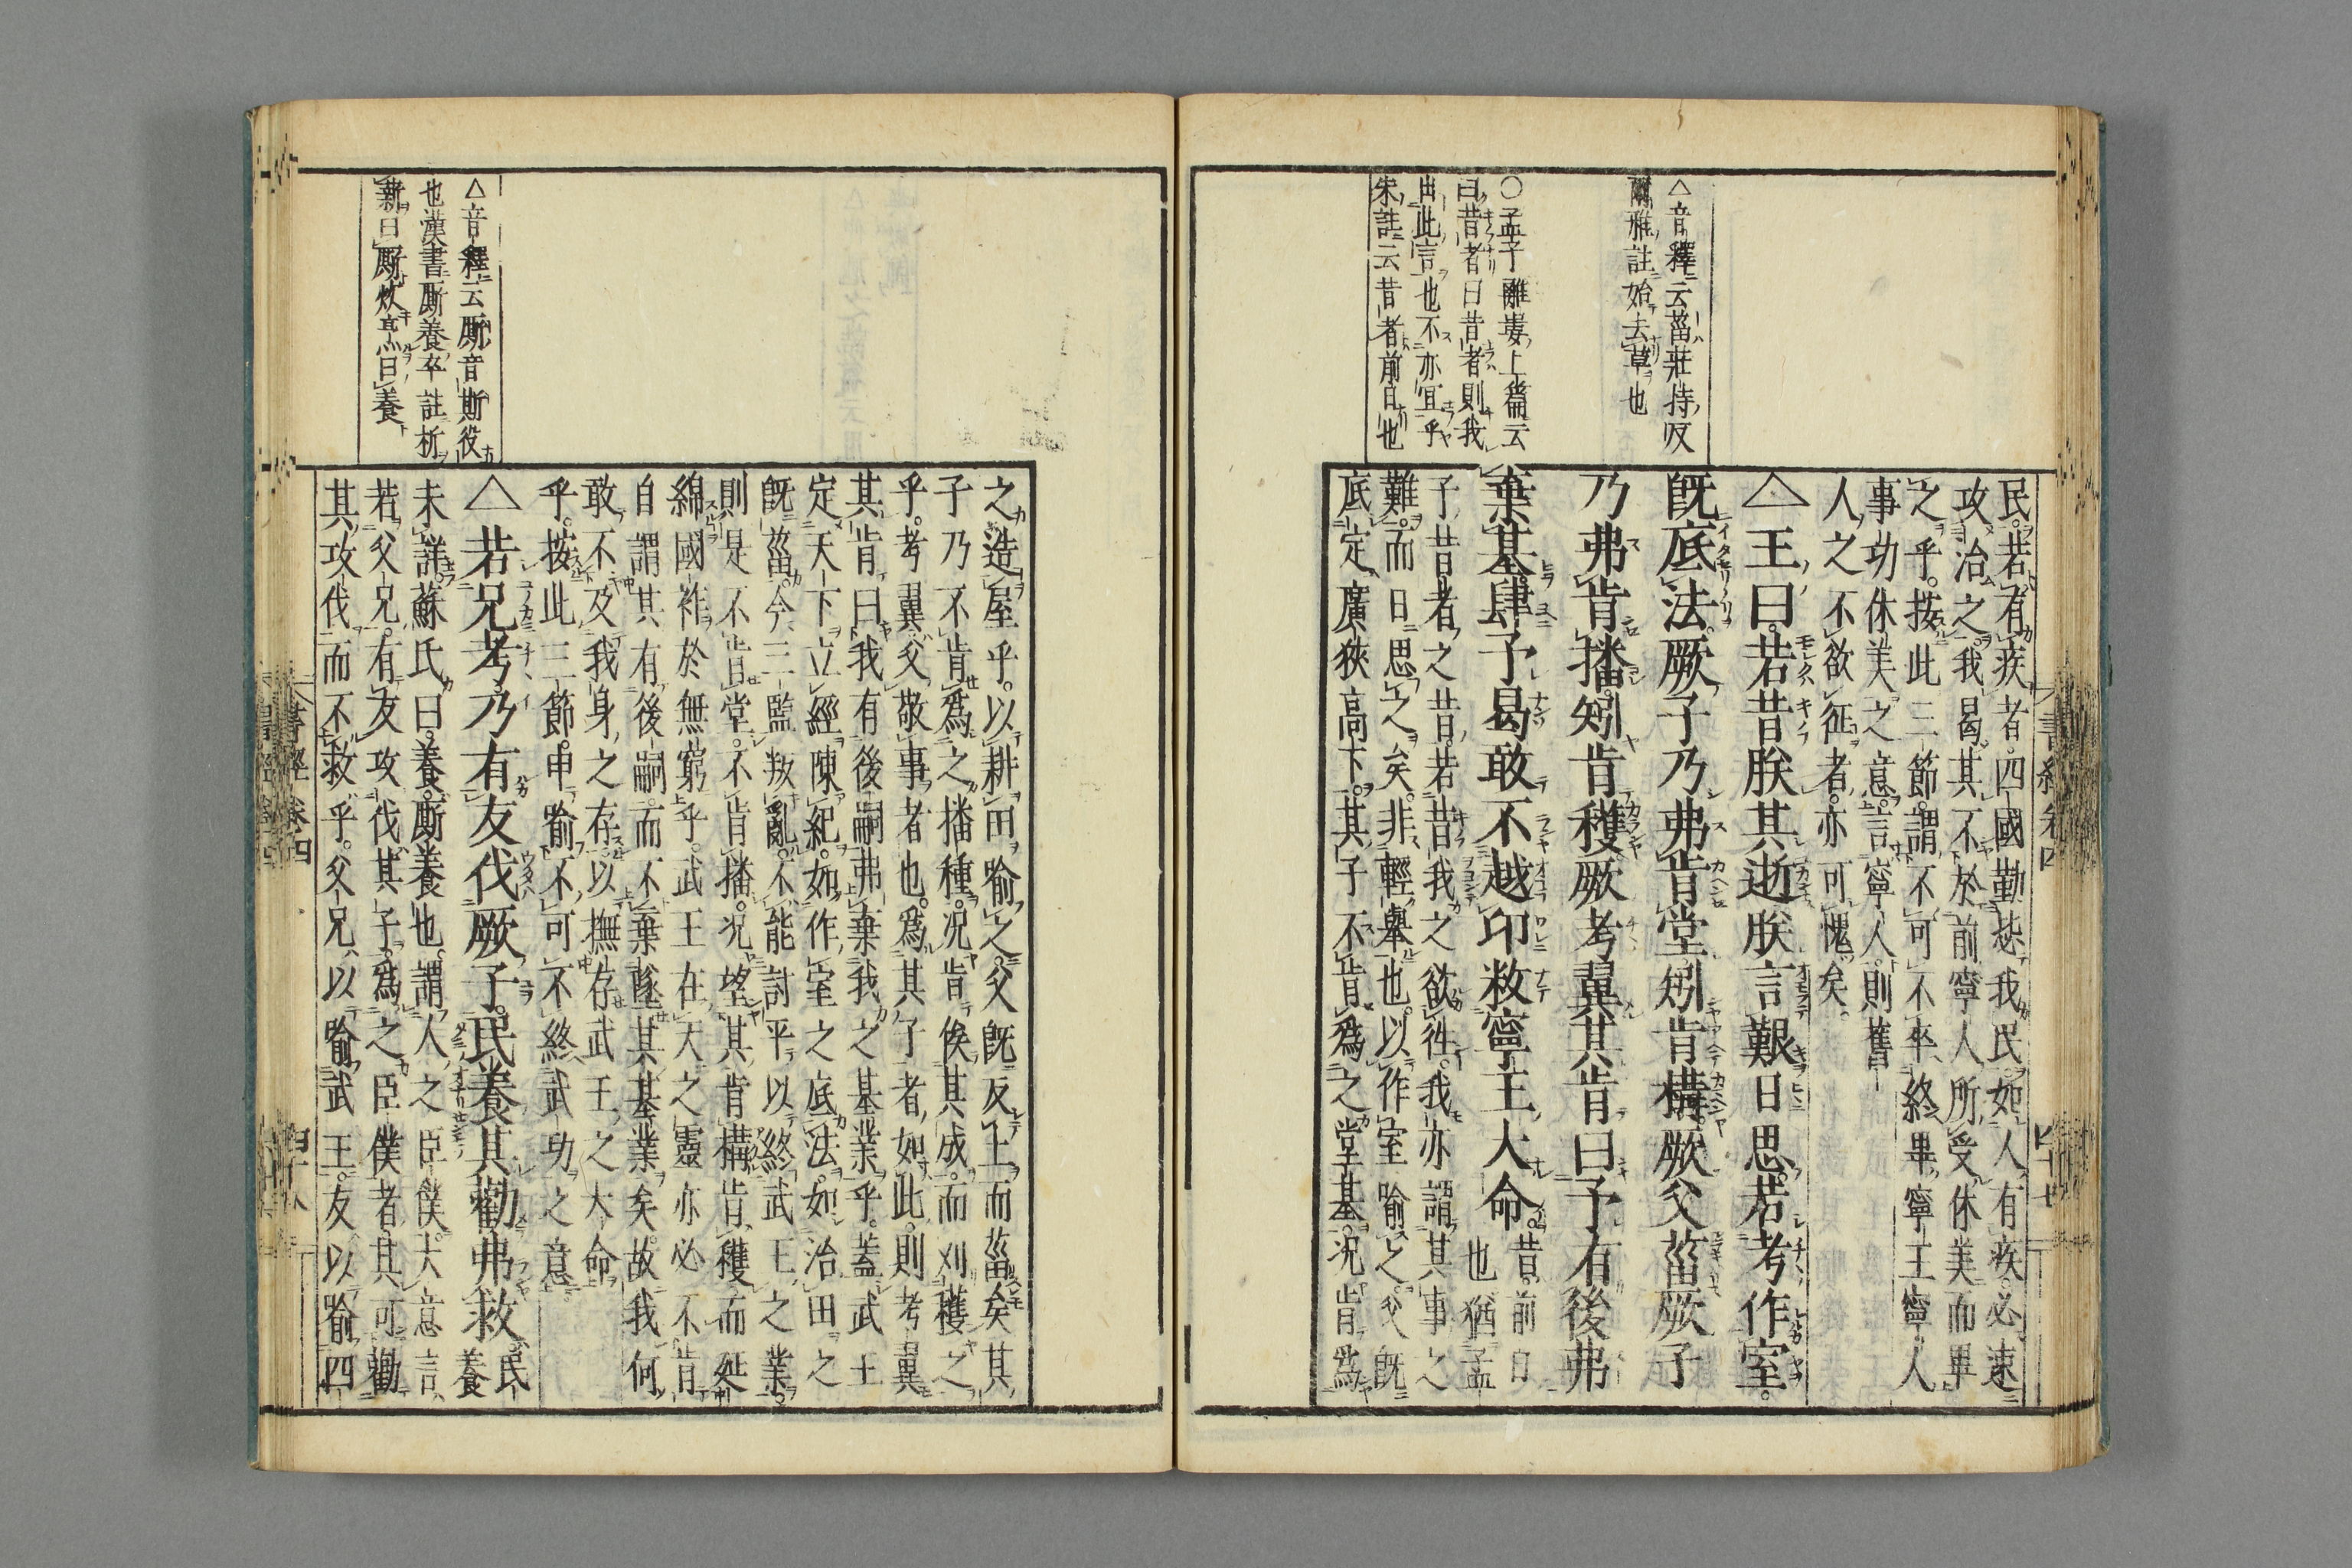 △音釋云菑莊持反
爾雅註始去草也
○孟子離婁上篇云
曰昔者曰昔者則我
出此言也不亦宜乎
朱註云昔者前日也
民若有疾者四國勤毖我民如人有疾必速
攻治之我曷其不於前寧人所受休美而畢
之乎按此三節謂不可不卒終畢寧王寧人
事功休美之意言寧人則舊
人之不欲征者亦可愧矣
△王曰若昔朕其逝朕言艱日思若考作室
旣底法厥子乃弗肯堂矧肯構厥父菑厥子
乃弗肯播矧肯穫厥考翼其肯曰予有後弗
棄基肆予曷敢不越卬敉寧王大命
昔前日
也猶孟
子昔者之昔若昔我之欲徃我亦謂其事之
難而日思之矣非輕舉也以作室喻之父旣
底定廣狹高下其子不肯爲之堂基況肯爲
之造屋乎以耕田喻之父旣反土而菑矣其
子乃不肯爲之播種況肯俟其成而刈穫之
乎考翼父敬事者也爲其子者如此則考翼
其肯曰我有後嗣弗棄我之基業乎蓋武王
定天下立經陳紀如作室之底法如治田之
旣菑今三監叛亂不能討平以終武王之業
則是不肯堂不肯播況望其肯構肯穫而延
綿國祚於無窮乎武王在天之靈亦必不肯
自謂其有後嗣而不棄墜其基業矣故我何
敢不及我身之存以撫存武王之大命
乎按此三節申喻不可不終武功之意
△若兄考乃有友伐厥子民養其勸弗救
民
養
未詳蘇氏曰養厮養也謂人之臣僕大意言
若父兄有友攻伐其子爲之臣僕者其可勸
其攻伐而不救乎父兄以喻武王友以喻四
△音釋云厮音斯役
也漢書厮養卒註析
薪曰厮炊烹曰養
書經卷四
四十八